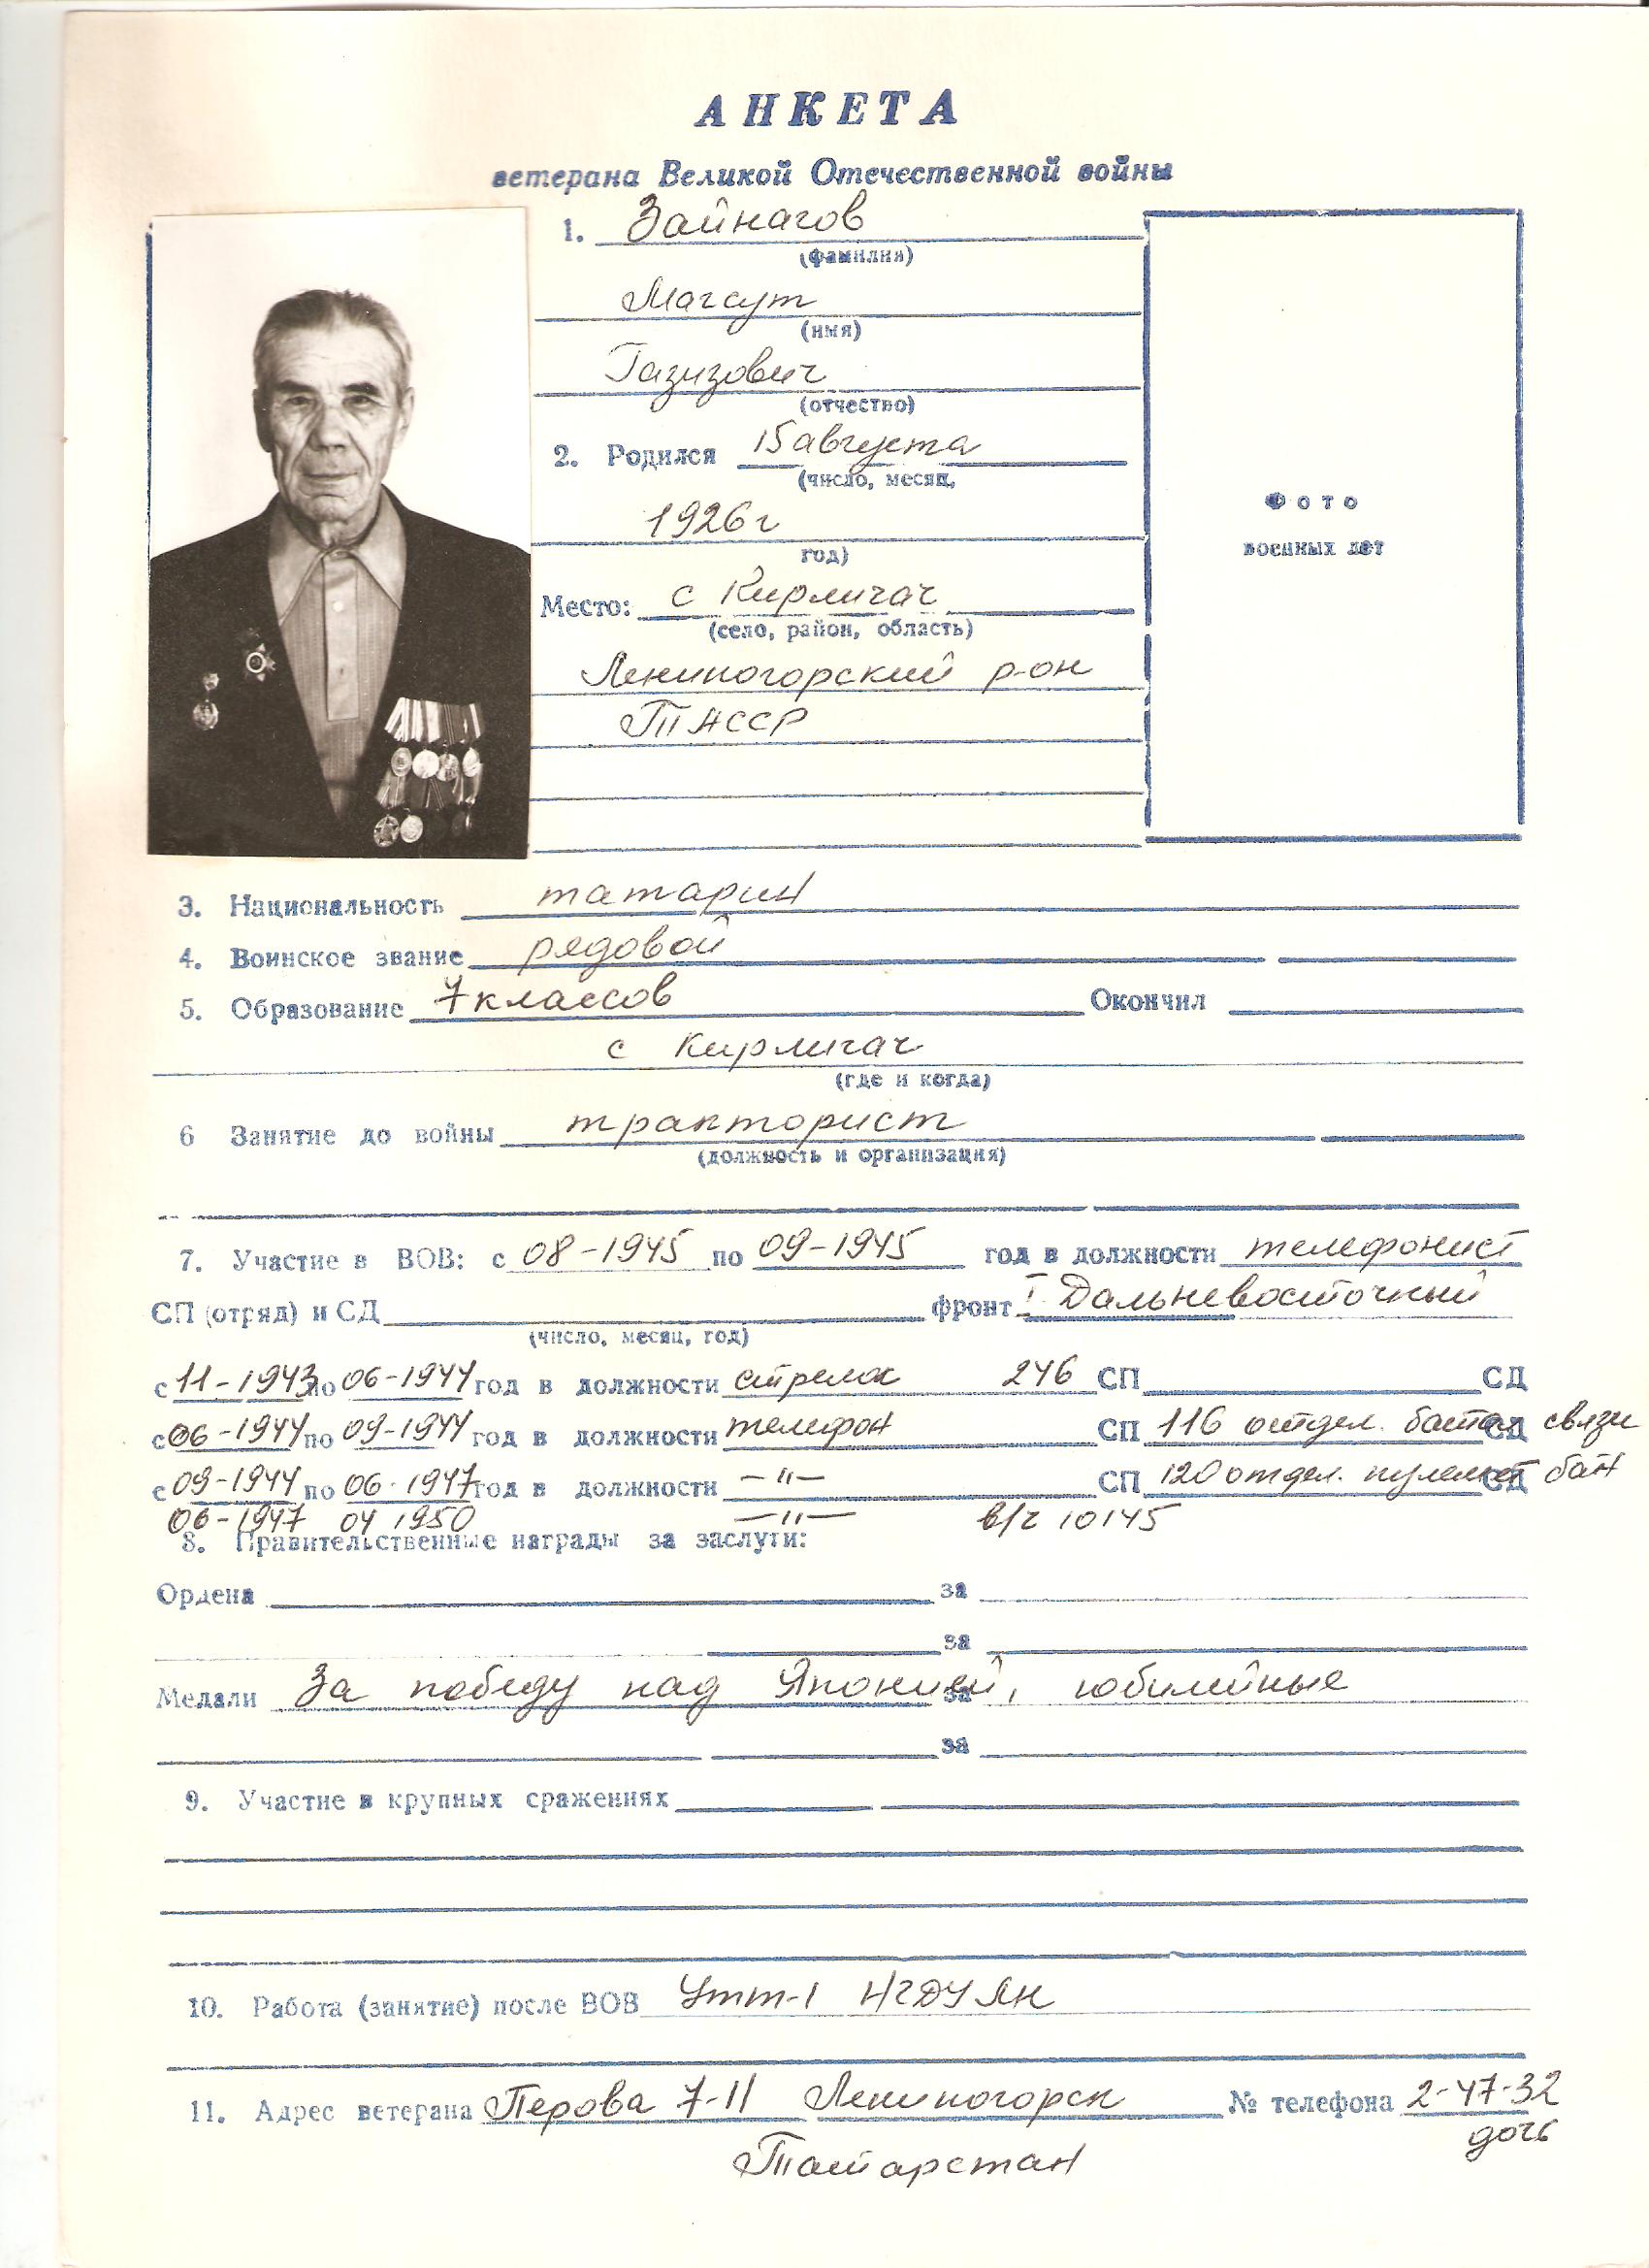 АНКЕТА
ветерана Великой Отечественной войны
1. Зайнагов
(фамилия)
Магсут
(имя)
Газизович
(отчество)
2. Родился 15 августа
(число, месяц,
1926 г
год)
Место: с Кирлигач
(село, район, область)
Лениногорский р-он
ТАССР
Фото
военных лет
3. Национальность татарин
4. Воинское звание рядовой
5. Образование 7 классов Окончил
с Кирлигач
(где и когда)
6 Занятие до войны тракторист
(должность и организация)
7. Участие в ВОВ: с 08-1945 по 09-1945 год в должности телефонист
СП (отряд) и СД фронт I Дальневосточный
(число, месяц, год)
с 11-1943 по 06-1944 год в должности стрелок 246 СП СД
с 06-1944 по 09-1944 год в должности телефон СП 116 отдел. батал СД связи
с 09-1944 по 06-1947 год в должности —"— СП 120 отдел. пулемет СД бат
06-1947 04 1950 —"— в/ч 10145
8. Правительственные награды за заслуги:
Ордена за
за
Медали За победу над Японией, за юбилейные
за
9. Участие в крупных сражениях
10. Работа (занятие) после ВОВ Утт-1 НГДУ ЛН
11. Адрес ветерана Перова 7-11 Лениногорск № телефона 2-47-32
дочь
Татарстан